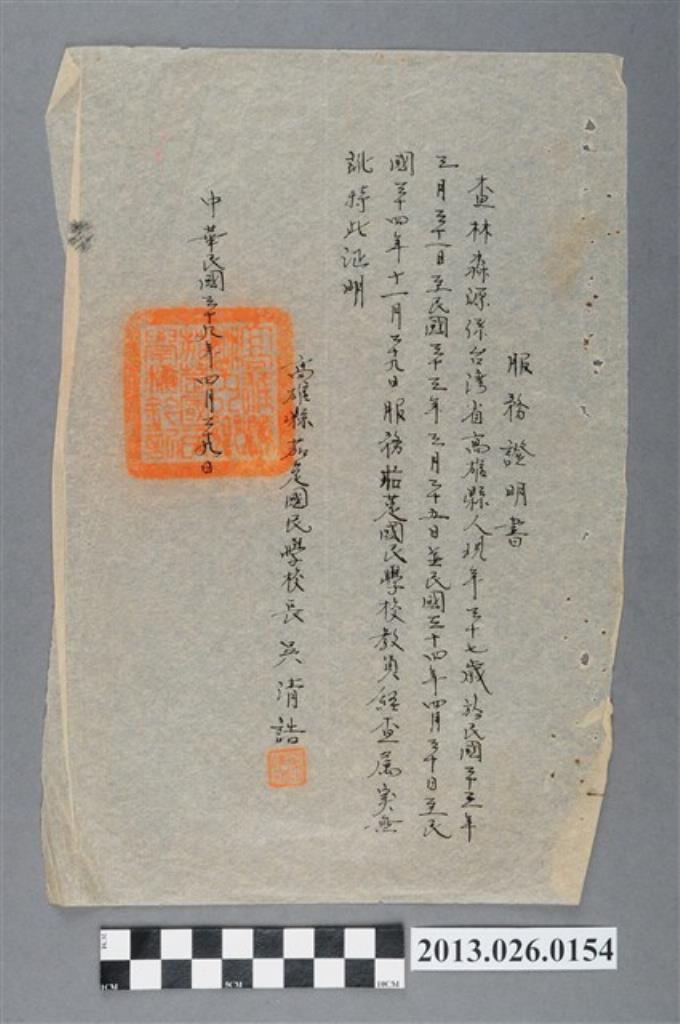 服務證明書
查林森源係台灣省高雄縣人現年三十七歲於民國二十三年
三月三十一日至民國三十三年三月二十五日並民國三十四年四月三十日至民
國三十四年十一月二九日服務茄萣國民學校教員経查属实無
訛特此证明
高雄縣茄萣國民學校長吳清誥
中華民國三十九年四月二九日
2013.026.0154
1CM
5CM
10CM